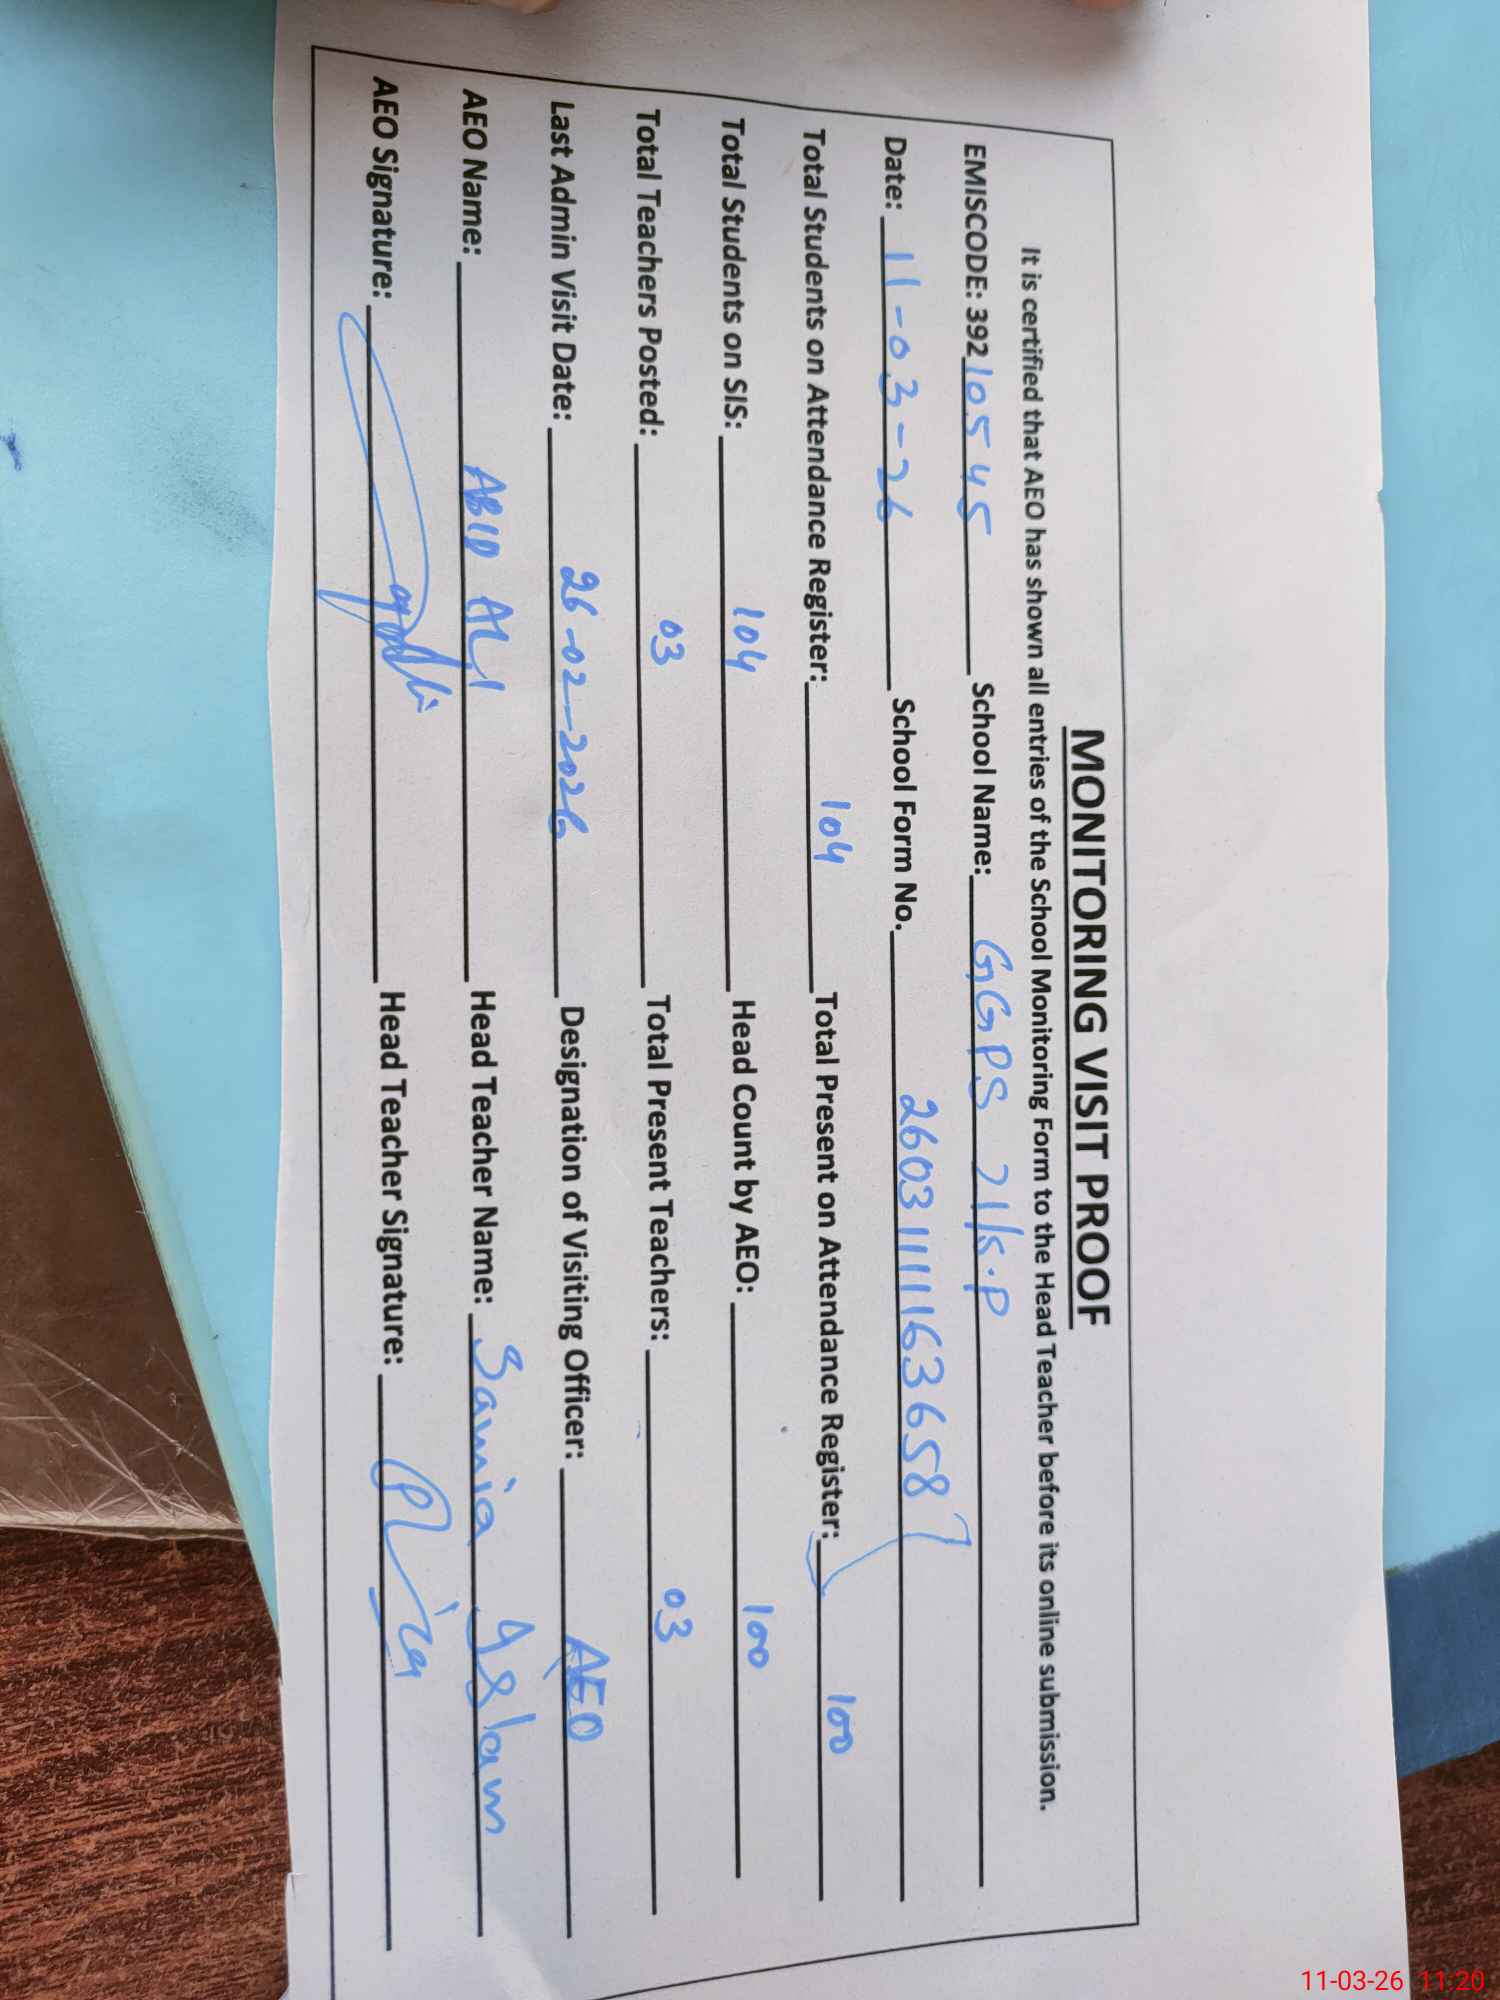 MONITORING VISIT PROOF
It is certified that AEO has shown all entries of the School Monitoring Form to the Head Teacher before its online submission.
EMISCODE: 39210545 School Name: GGPS 71/5.P
Date: 11-03-26 School Form No. 26031111636587
Total Students on Attendance Register: 104 Total Present on Attendance Register: 100
Total Students on SIS: 104 Head Count by AEO: 100
Total Teachers Posted: 03 Total Present Teachers: 03
Last Admin Visit Date: 26-02-2026 Designation of Visiting Officer: AEO
AEO Name: ABID ALI Head Teacher Name: Samia Islam
AEO Signature: Head Teacher Signature:
11-03-26 11:20